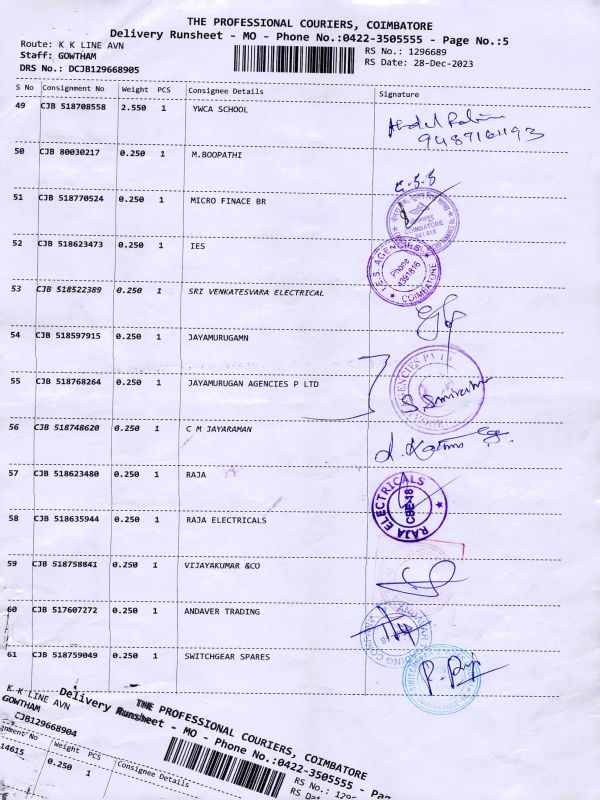 THE PROFESSIONAL COURIERS, COIMBATORE
Delivery Runsheet - MO - Phone No.:0422-3505555 - Page No.:5
Route: K K LINE AVN
RS No.: 1296689
Staff: GOWTHAM
RS Date: 28-Dec-2023
DRS No.: DCJB129668905
S No Consignment No Weight PCS Consignee Details Signature
49 CJB 518708558 2.550 1 YWCA SCHOOL
9487161193
50 CJB 80030217 0.250 1 M.BOOPATHI
51 CJB 518770524 0.250 1 MICRO FINACE BR
COIMBATORE
52 CJB 518623473 0.250 1 IES
I.E.S. AGENCIES
Phone
4391816
COIMBATORE
53 CJB 518522389 0.250 1 SRI VENKATESVARA ELECTRICAL
54 CJB 518597915 0.250 1 JAYAMURUGAMN
55 CJB 518768264 0.250 1 JAYAMURUGAN AGENCIES P LTD
56 CJB 518748620 0.250 1 C M JAYARAMAN
57 CJB 518623480 0.250 1 RAJA
RAJA ELECTRICALS
CBE-18
58 CJB 518635944 0.250 1 RAJA ELECTRICALS
59 CJB 518758841 0.250 1 VIJAYAKUMAR &CO
60 CJB 517607272 0.250 1 ANDAVER TRADING
61 CJB 518759049 0.250 1 SWITCHGEAR SPARES
THE PROFESSIONAL COURIERS, COIMBATORE
Delivery Runsheet - MO - Phone No.:0422-3505555 - Pa
K K LINE AVN
GOWTHAM
CJB129668904
RS No.: 1296
RS Da
gnment No Weight PCS Consignee Details
14615 0.250 1